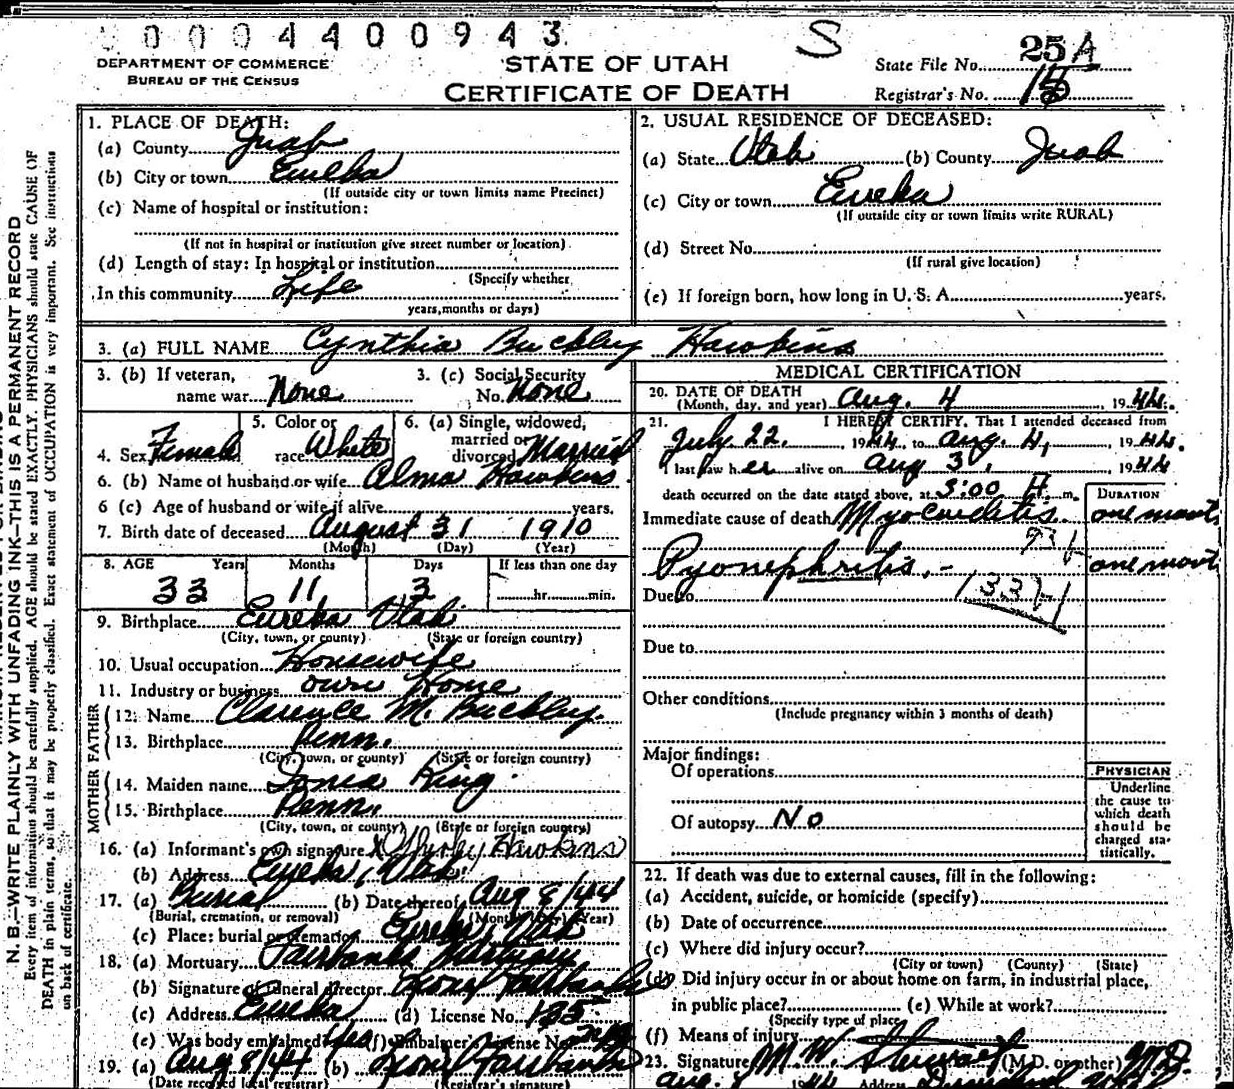 0004400943
S
DEPARTMENT OF COMMERCE
BUREAU OF THE CENSUS
STATE OF UTAH
CERTIFICATE OF DEATH
State File No. 25A
Registrar's No. 15
1. PLACE OF DEATH:
(a) County Juab
(b) City or town Eureka
(If outside city or town limits name Precinct)
(c) Name of hospital or institution:
(If not in hospital or institution give street number or location)
(d) Length of stay: In hospital or institution
(Specify whether
In this community Life
years, months or days)
2. USUAL RESIDENCE OF DECEASED:
(a) State Utah (b) County Juab
(c) City or town Eureka
(If outside city or town limits write RURAL)
(d) Street No.
(If rural give location)
(e) If foreign born, how long in U. S. A. years.
3. (a) FULL NAME Cynthia Buckley Hawkins
3. (b) If veteran, name war None
3. (c) Social Security No. None
4. Sex Female
5. Color or race White
6. (a) Single, widowed, married or divorced Married
6. (b) Name of husband or wife Alma Hawkins
6 (c) Age of husband or wife if alive years.
7. Birth date of deceased August 31 1910
(Month) (Day) (Year)
8. AGE Years Months Days If less than one day
33 11 3 hr. min.
9. Birthplace Eureka Utah
(City, town, or county) (State or foreign country)
10. Usual occupation Housewife
11. Industry or business own Home
FATHER
12. Name Clarence M. Buckley.
13. Birthplace Penn.
(City, town, or county) (State or foreign country)
MOTHER
14. Maiden name King
15. Birthplace Penn.
(City, town, or county) (State or foreign country)
16. (a) Informant's own signature X Shirley Hawkins
(b) Address Eureka, Utah
17. (a) Burial (b) Date thereof Aug 8/44
(Burial, cremation, or removal) (Month) (Day) (Year)
(c) Place: burial or cremation Eureka, Utah
18. (a) Mortuary Fairbanks Mortuary
(b) Signature of funeral director Lionel Fairbanks
(c) Address Eureka (d) License No. 135
(e) Was body embalmed Yes (f) Embalmer's License No.
19. (a) Aug 8/44 (b) Lionel Fairbanks
(Date received local registrar) (Registrar's signature)
MEDICAL CERTIFICATION
20. DATE OF DEATH
(Month, day, and year) Aug. 4 , 1944.
21. I HEREBY CERTIFY, That I attended deceased from
July 22. , 1944 to Aug. 4, , 1944.
I last saw her alive on Aug 3, 1944
death occurred on the date stated above, at 3:00 A. m.
DURATION
Immediate cause of death Myocarditis one mont
Pyonephritis. one mont
Due to
Due to
Other conditions
(Include pregnancy within 3 months of death)
Major findings:
Of operations
Of autopsy No
PHYSICIAN
Underline
the cause to
which death
should be
charged sta-
tistically.
22. If death was due to external causes, fill in the following:
(a) Accident, suicide, or homicide (specify)
(b) Date of occurrence
(c) Where did injury occur?
(City or town) (County) (State)
(d) Did injury occur in or about home on farm, in industrial place,
in public place? (e) While at work?
(Specify type of place
(f) Means of injury
23. Signature M. W. Stewart (M.D. or other) M.D.
Address
N. B.—WRITE PLAINLY WITH UNFADING INK—THIS IS A PERMANENT RECORD
Every item of information should be carefully supplied. AGE should be stated EXACTLY. PHYSICIANS should state CAUSE OF
DEATH in plain terms, so that it may be properly classified. Exact statement of OCCUPATION is very important. See instructions
on back of certificate.